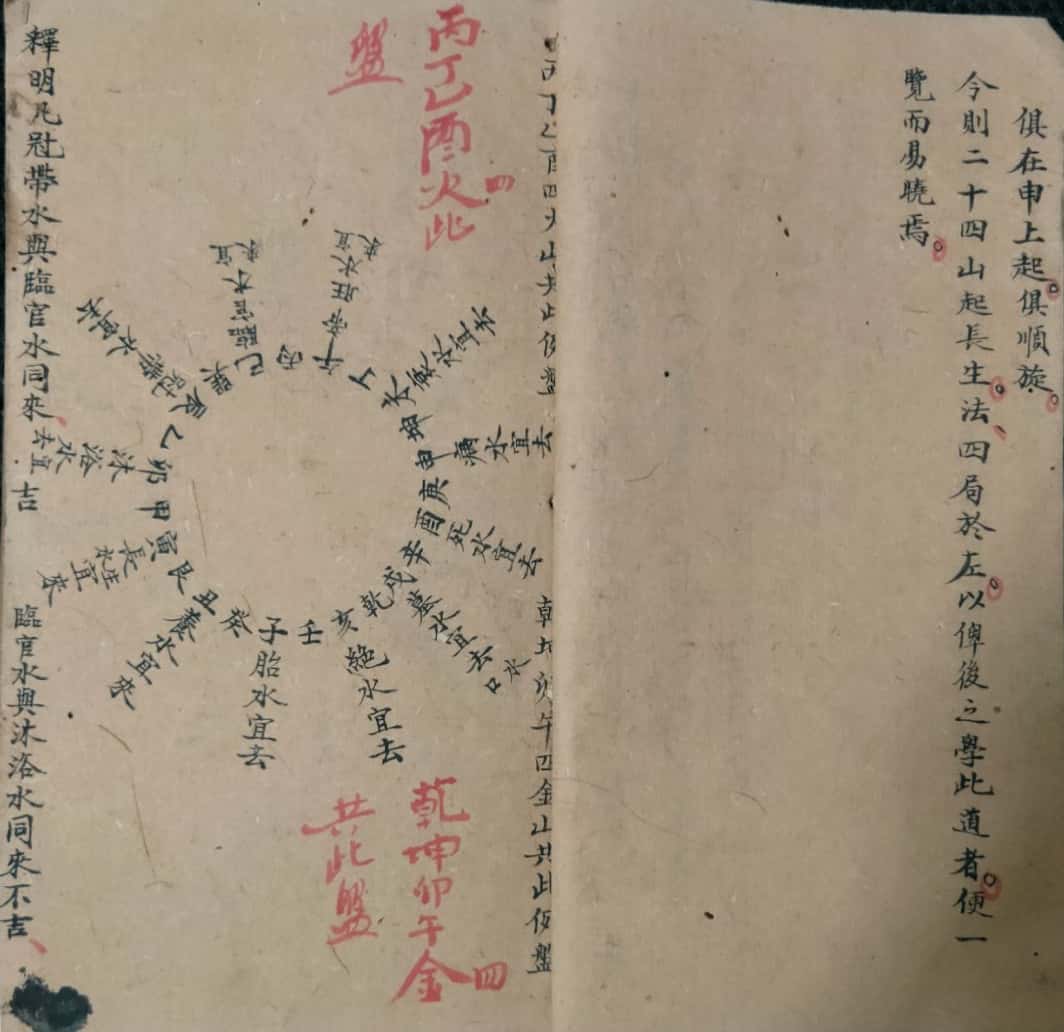 俱在申上起俱順旋
今則二十四山起長生法四局於左以俾後之學此道者便一
覽而易曉焉
丙丁乙酉四火山共此仮盤
乾坤卯午四金山共此仮盤
丙丁乙酉四火此
盤
乾坤卯午四金
共此盤
午帝旺水宜來
丙
巳臨官水宜來
巽
辰冠帶水宜來
乙
卯沐浴水宜去
甲
寅長生水宜來
艮
丑養水宜來
癸
子胎水宜去
壬
亥絕水宜去
乾
戌墓水宜去
水口
辛
酉死水宜去
庚
申病水宜去
坤
未衰水宜去
丁
釋明凡冠帶水與臨官水同來吉
臨官水與沐浴水同來不吉